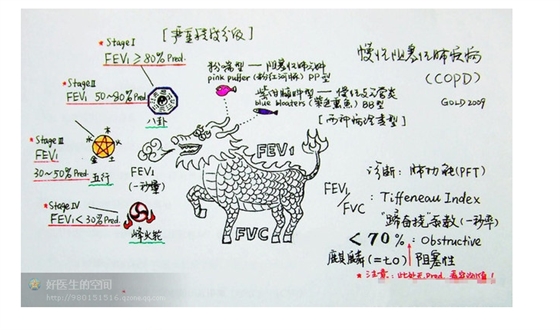 [严重程度分级]
★Stage I
FEV₁ ≥ 80% Pred.
★Stage II
FEV₁ 50~80% Pred.
八卦
★Stage III
FEV₁
30~50% Pred.
木
水
火
金
土
五行
★Stage IV
FEV₁ < 30% Pred.
烽火轮
FEV₁
(一秒量)
粉喘型 — 阻塞性肺气肿
pink puffer (粉红河豚) PP型
紫绀臃肿型 — 慢性支气管炎
blue bloaters (紫色熏鱼) BB型
[两种病理类型]
FEV₁
FVC
慢性阻塞性肺疾病
(COPD)
GOLD 2009
诊断: 肺功能(PFT)
FEV₁/FVC : Tiffeneau Index
"蹄白挠"系数(一秒率)
< 70% : Obstructive
麒麟(=七0) 阻塞性
★注意: Pred.
好医生的空间
http://980151516.qzone.qq.com